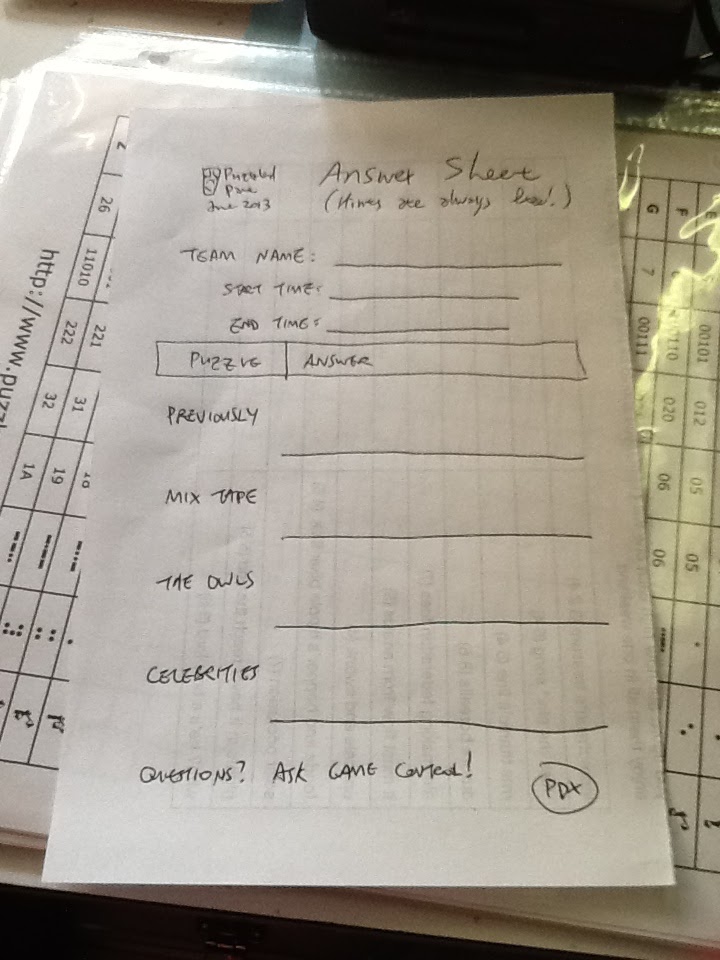 Puzzled
Pint
June 2013
Answer Sheet
(Hints are always free!)
TEAM NAME:
START TIME:
END TIME:
PUZZLE ANSWER
PREVIOUSLY
MIX TAPE
THE OWLS
CELEBRITIES
QUESTIONS? ASK GAME CONTROL!
PDX
http://www.puzzl
26 11010 222 32 1A
221 31 19
E 00101 012 05 05
F 020 06 06
G 7 00111